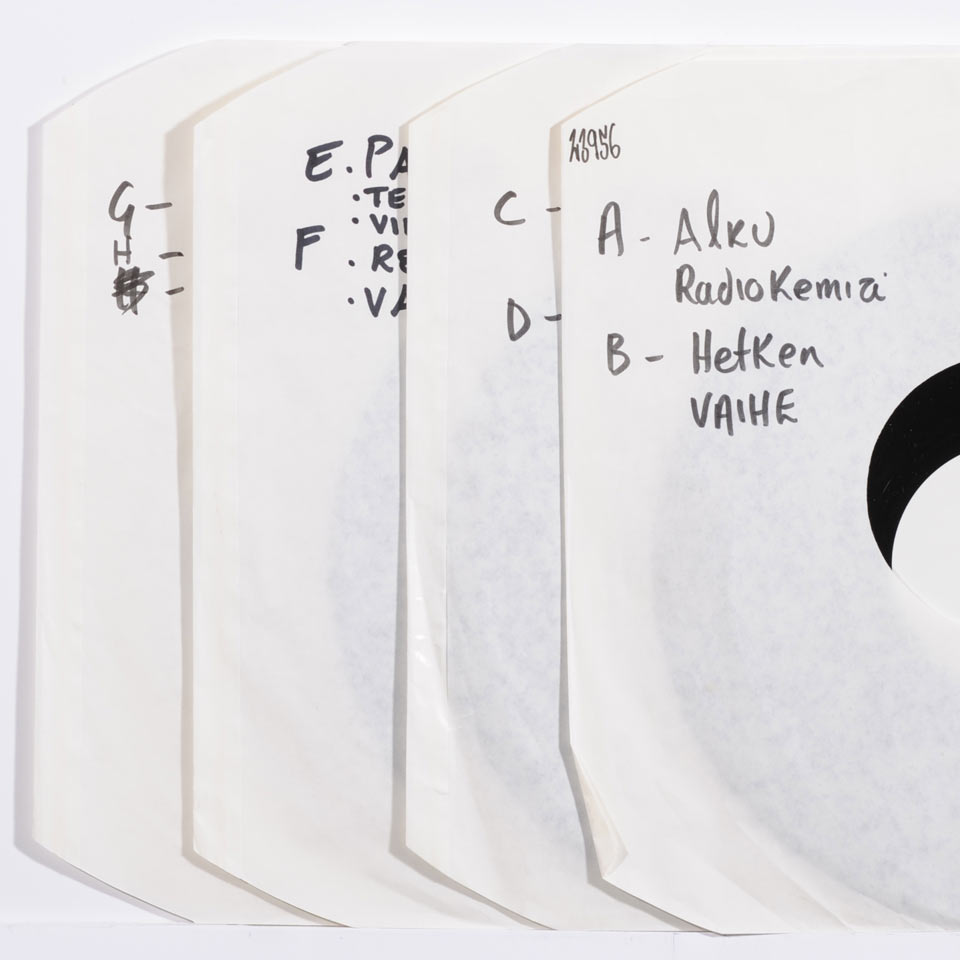 G -
H -
-
E. PA
• TE
• VII
F • RE
• VA
C -
D -
23956
A - Alku
RadioKemia
B - HetKen
VAIHE